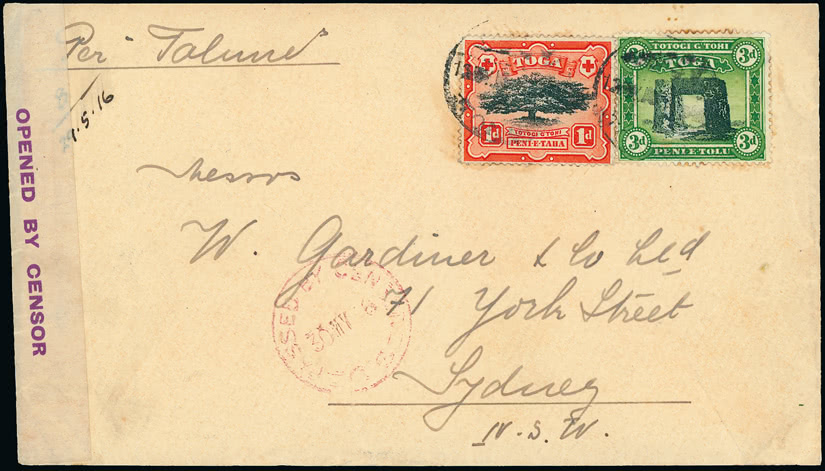 Per "Talune"
1.5.16
OPENED BY CENSOR
TOGA
1d 1d
TOTOGI G TOHI
PENI·E·TAHA
TOTOGI G TOHI
3d 3d
TOGA
3d 3d
PENI·E·TOLU
Messrs
W. Gardiner & Co Ltd
71 York Street
Sydney
N. S. W.
PASSED BY